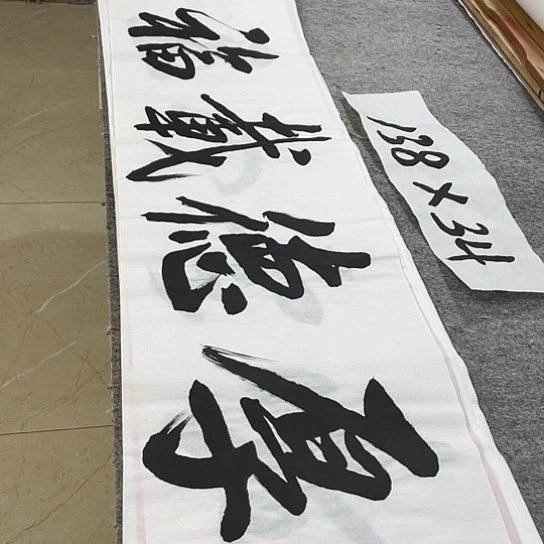 厚德載福
138×34